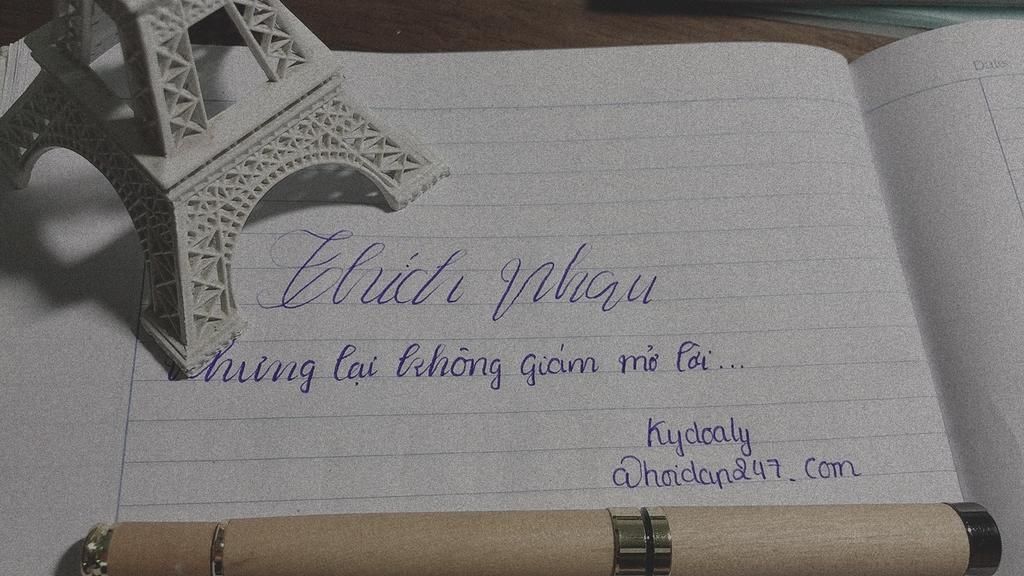 Date
Thích nhau
nhưng lại không giám mở lời...
Kydoaly
@hoidap247.com